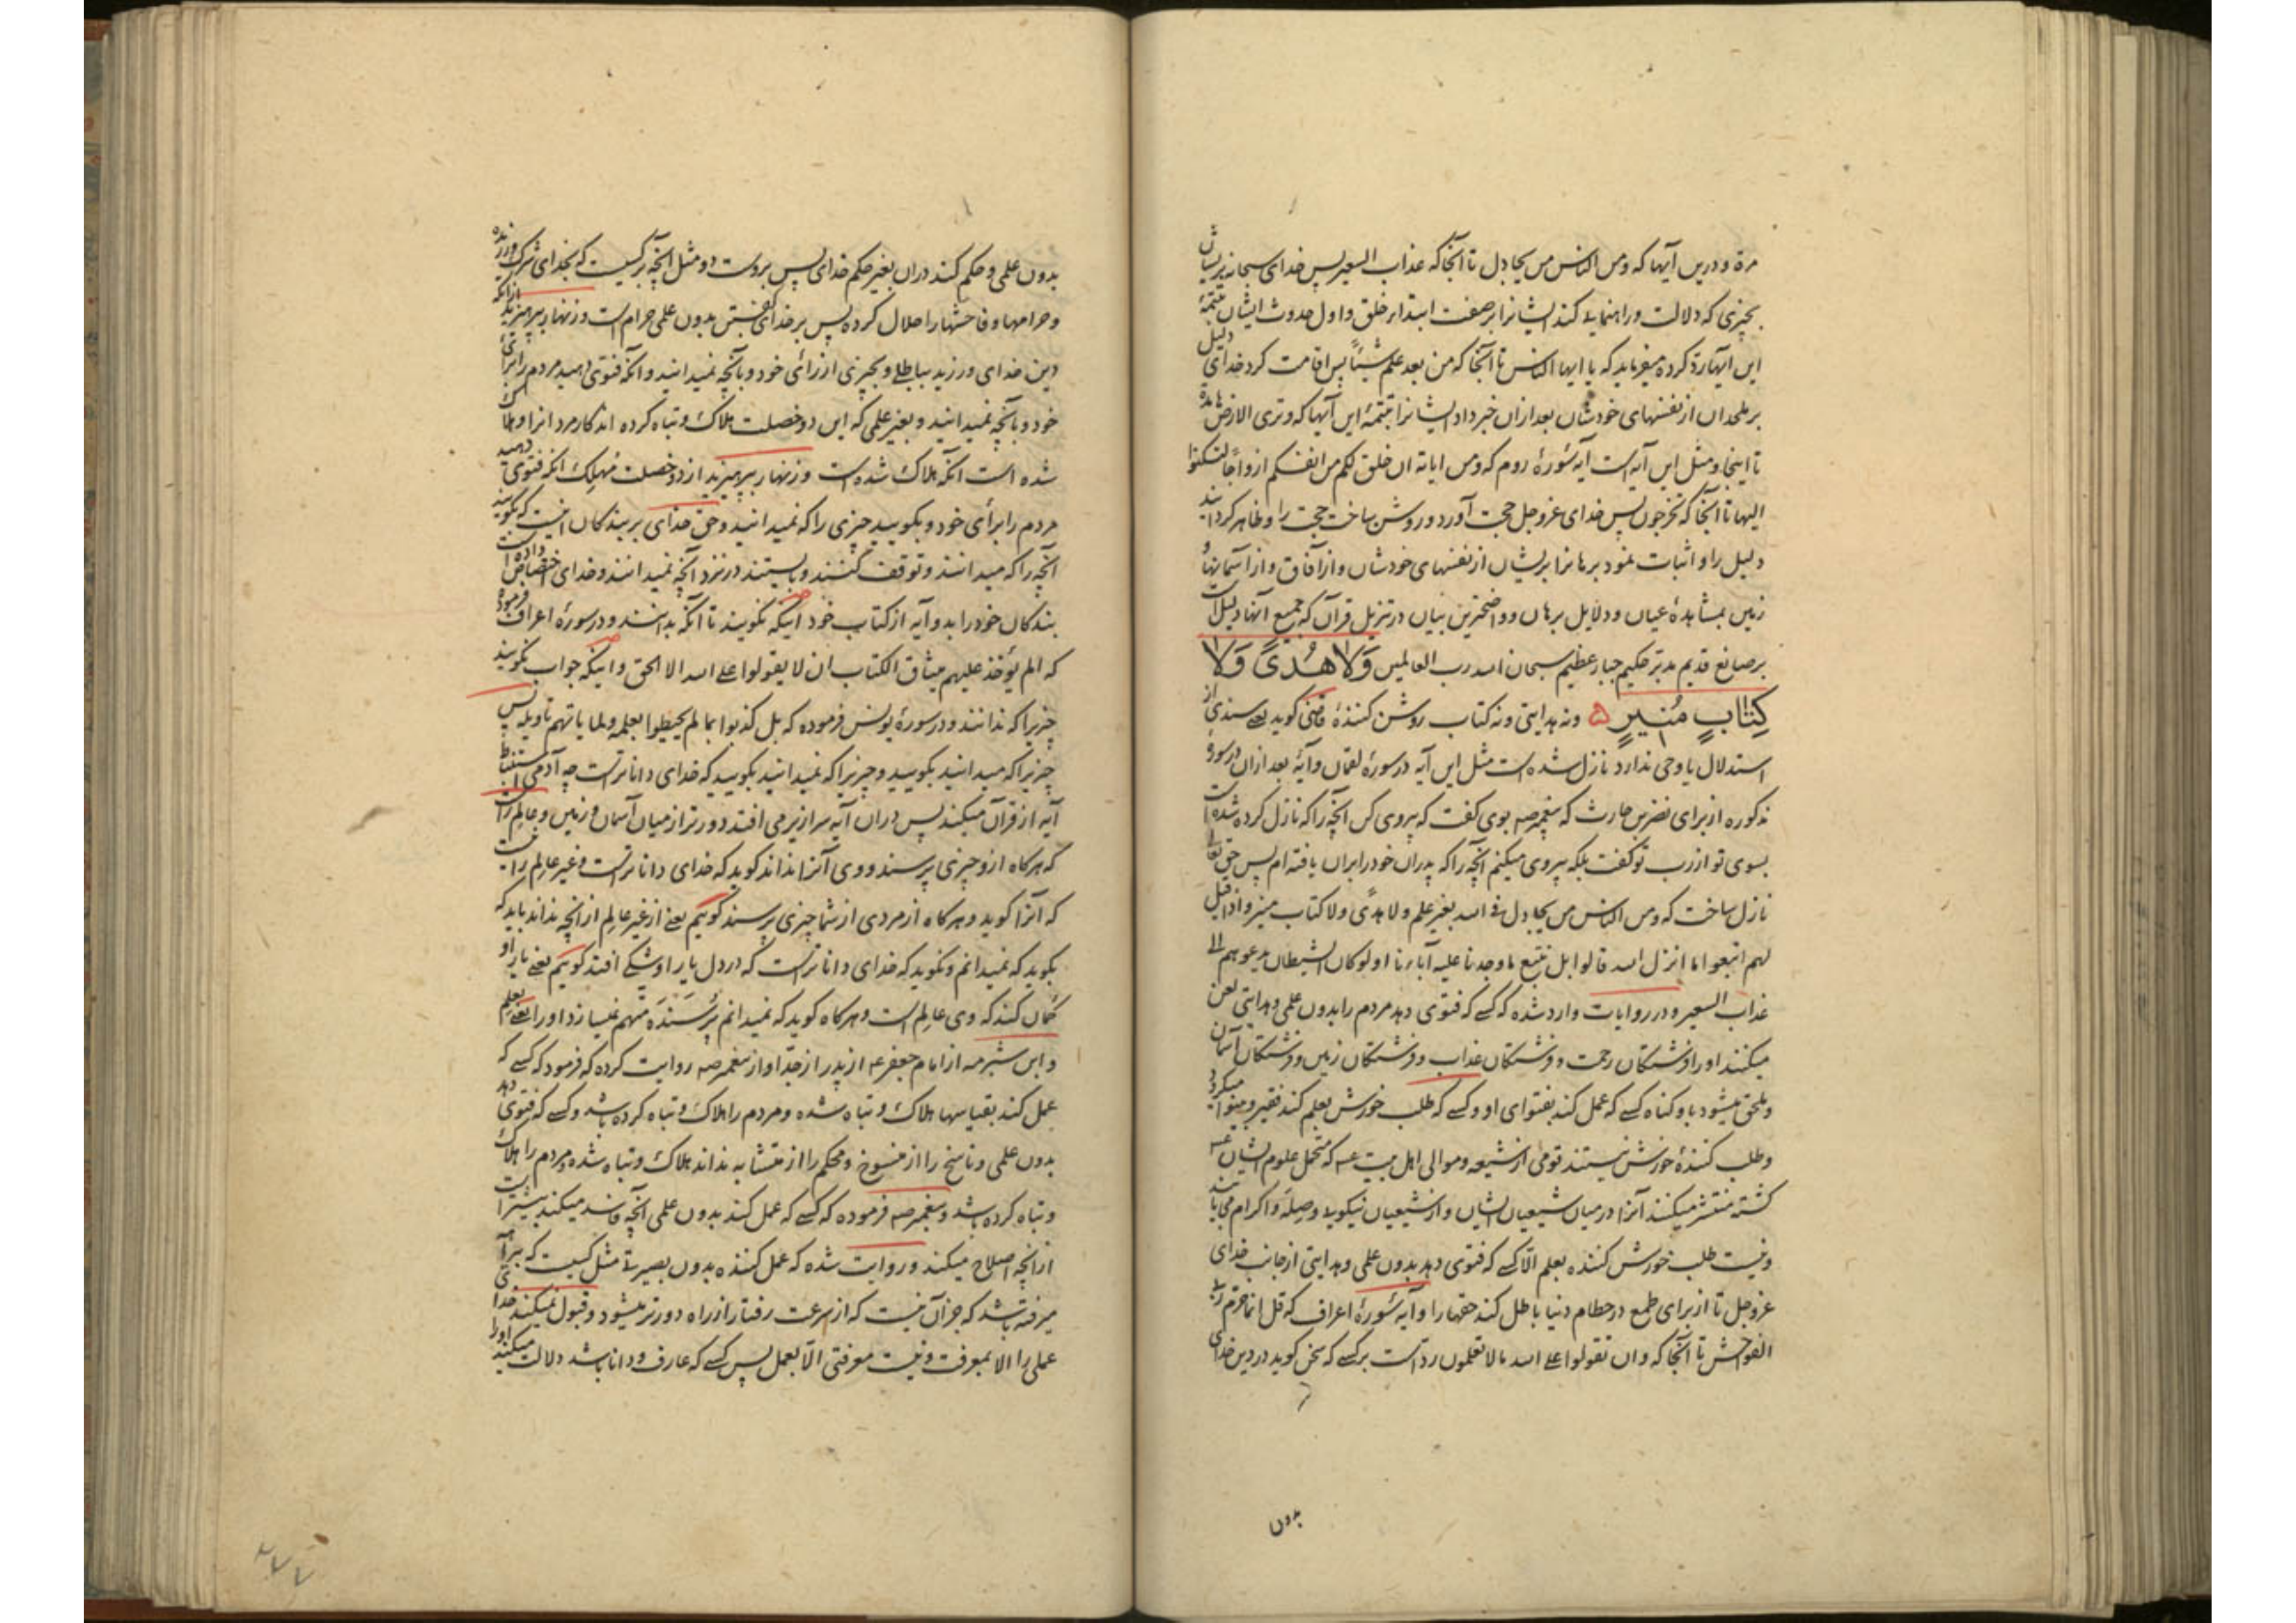 مرة و درین آیها که ومن الناس من یجادل تا آنجا که عذاب السعیر پس خدای سبحانه بریشان
بچیزی که دلالت و راهنمایی کند ایشانرا بر صفت ابتدار خلق و اول حدوث ایشان تتمهٔ
این آیها رد کرده میفرماید که یا ایها الناس تا آنجا که من بعد علم شیئاً پس اقامت کرد خدای دلیل
بر ملحدان از نفسهای خودشان بعد از ان خبر داد ایشانرا تتمهٔ این آیها که وتری الارض هامدة
تا اینجا و مثل این آیه است آیه سورهٔ روم که ومن ایاته ان خلق لکم من انفسکم ازواجاً لتسکنوا
الیها تا آنجا که تخرجون پس خدای عزوجل حجت آورد و روشن ساخت حجت را و ظاهر گردانید
دلیل را و اثبات نمود برهانرا بریشان از نفسهای خودشان و از آفاق و از آسمانها و
زمین بمشاهدهٔ عیان و دلایل برهان و واضحترین بیان در تنزیل قرآن که جمیع آنها دلیلست
بر صانع قدیم مدبر حکیم جبار عظیم سبحان الله رب العالمین وَلَا هُدًى وَلَا
كِتَابٍ مُنِيرٍ ۵ ونه هدایتی ونه کتاب روشن کنندهٔ قاضی گوید یعنی سندی از
استدلال یا وحی ندارد نازل شده است مثل این آیه در سورهٔ لقمان و آیهٔ بعد از ان در سورهٔ
مذکوره از برای نضر بن حارث که پیغمبر صه بوی گفت که پیروی کن آنچه را که نازل کرده شده است
بسوی تو از رب تو گفت بلکه پیروی میکنم آنچه را که پدران خود را بران یافته ام پس حق تعالی
نازل ساخت که ومن الناس من یجادل فی الله بغیر علم ولا هدًی ولا کتاب منیر واذا قیل
لهم اتبعوا ما انزل الله قالوا بل نتبع ما وجدنا علیه آباءنا اولو کان الشیطان یدعوهم الی
عذاب السعیر و در روایات وارد شده که کسی که فتوی دهد مردم را بدون علمی و هدایتی لعن
میکنند او را فرشتگان رحمت و فرشتگان عذاب و فرشتگان زمین و فرشتگان آسمان
و ملحق میشود باو گناه کسی که عمل کند بفتوای او و کسی که طلب خورش بعلم کند فقیر و بینوا میگردد
و طلب کنندهٔ خورش نیستند قومی از شیعه و موالی اهل بیت عه که متحمل علوم ایشان عه
گشته منتشر میکنند آنرا در میان شیعیان ایشان و از شیعیان نیکویی و صله و اکرام می یابند
و نیست طلب خورش کننده بعلم الّا کسی که فتوی دهد بدون علمی و هدایتی از جانب خدای
عزوجل تا از برای طمع در حطام دنیا باطل کند حقها را و آیهٔ سورهٔ اعراف که قل انما حرم ربی
الفواحش تا آنجا که وان تقولوا علی الله مالا تعلمون ردّ است بر کسی که سخن گوید در دین خدای
بدون
بدون علمی و حکم کند دران بغیر حکم خدای پس بروست و و مثل آنچه بر کسیست که بخدای شرک ورزنده
و حرامها و فاحشها را حلال کرده پس بر خدای گفتن بدون علمی حرام است و زنهار بپرهیزید از آنکه
دین خدای ورزید بباطلی و بچیزی از رأی خود و بآنچه نمیدانید و آنکه فتوی دهید مردم را برأی
خود و بآنچه نمیدانید و بغیر علمی که این دو خصلت هلاک و تباه کرده اند کار مردانرا و هلاک
شده است آنکه هلاک شده است و زنهار بپرهیزید از دو خصلت مُهلِک آنکه فتوی دهید
مردم را برأی خود و بگویید چیزی را که نمیدانید و حق خدای بر بندگان اینست که بگویند
آنچه را که میدانند و توقف کنند و بایستند در نزد آنچه نمیدانند و خدای اختصاص داده است
بندگان خود را بدو آیه از کتاب خود اینکه نگویند تا آنکه بدانند و در سورهٔ اعراف فرموده
که الم یؤخذ علیهم میثاق الکتاب ان لا یقولوا علی الله الا الحق و اینکه جواب نگویند
چیزیرا که ندانند و در سورهٔ یونس فرموده که بل کذبوا بما لم یحیطوا بعلمه ولما یاتهم تاویله پس
چیزیرا که میدانید بگویید و چیزیرا که نمیدانید بگویید که خدای داناترست چه آدمی استنباط
آیه از قرآن میکند پس دران آیه سرازیر می افتد دورتر از میان آسمان و زمین و عالم راست
که هرگاه ازو چیزی پرسند و وی آنرا نداند گوید که خدای داناترست و غیر عالم را نیست
که آنرا گوید و هرگاه از مردی از شما چیزی پرسند گوییم یعنی از غیر عالم از آنچه نداند باید که
بگوید که نمیدانم و نگوید که خدای داناترست که در دل یار او شکی افتد گوییم یعنی یار او
گمان کند که وی عالم است و هرگاه گوید که نمیدانم پرسنده متهم نمیسازد او را یعنی بعلم
و ابن شبرمه از امام جعفر عه از پدر از جدّ او از پیغمبر صه روایت کرده که فرمود که کسی که
عمل کند بقیاسها هلاک و تباه شده و مردم را هلاک و تباه کرده باشد و کسی که فتوی دهد
بدون علمی و ناسخ را از منسوخ و محکم را از متشابه نداند هلاک و تباه شده و مردم را هلاک
و تباه کرده باشد و پیغمبر صه فرموده که کسی که عمل کند بدون علمی آنچه فاسد میکند بیشترست
از آنچه اصلاح میکند و روایت شده که عمل کننده بدون بصیرتی مثل کسیست که
میرفته باشد که جز آن نیست که از سرعت رفتار از راه دورتر میشود و قبول نمیکند خدای
عملی را الا بمعرفت و نیست معرفتی الّا بعمل پس کسی که عارف و دانا باشد دلالت میکند او را
۲۷۷